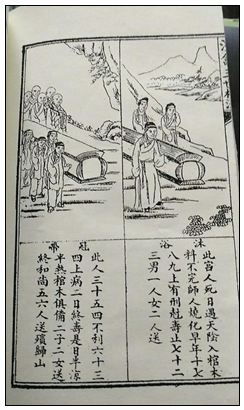 沐浴
此宫人死日遇天陰入棺木
料不完師人燒化早年十七
八九上有刑尅壽止七十二
三男一人女二人送
冠帶
此人三十五四不利六十三
四上病一日終壽是日半涼
半熱棺木俱備二子二女送
終和尚五六人送殯歸山